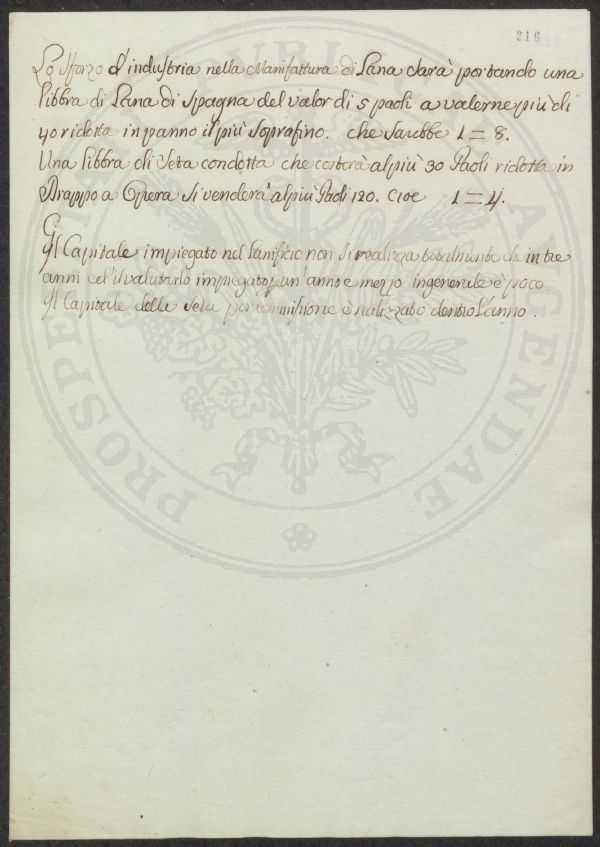 316
Lo sforzo d'industria nella Manifattura di Lana sarà portando una
libbra di Lana di Spagna del valor di 5 paoli a valerne più di
40 ridotta in panno il più soprafino. che sarebbe 1=8.
Una libbra di Seta condotta che costerà al più 30 Paoli ridotta in
Drappo a Opera si venderà al più Paoli 120. cioe 1=4.
Il Capitale impiegato nel Lanificio non si realizza totalmente che in tre
anni ed il valutarlo impiegato un'anno e mezzo in generale è poco
Il Capitale della Seta per commissione è realizzato dentro l'anno.
PROSPERITATI AUGENDAE